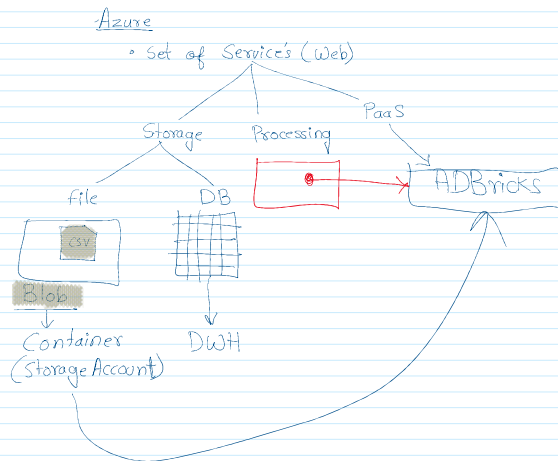 Azure
• Set of Service's (Web)
Storage Processing PaaS
file DB ADBricks
CSV
Blob
Container DWH
(Storage Account)